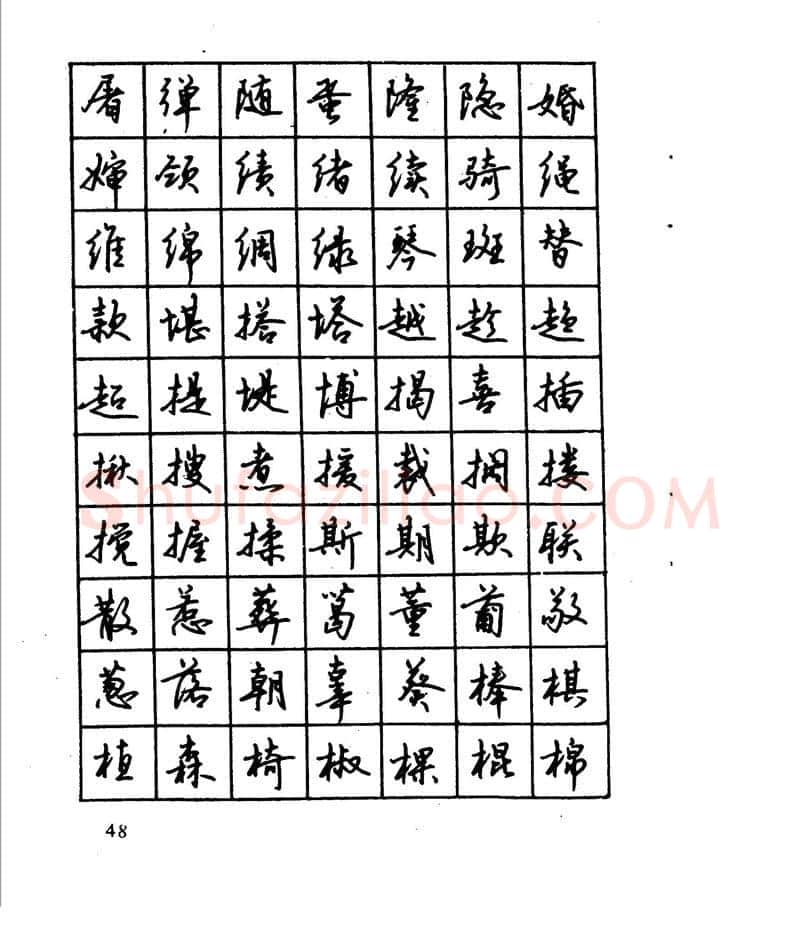 屠 弹 随 蛋 隆 隐 婚
婶 颈 绩 绪 续 骑 绳
维 绵 绸 绿 琴 斑 替
款 堪 搭 塔 越 趁 趋
超 提 堤 博 揭 喜 插
揪 搜 煮 援 裁 搁 搂
搅 握 揉 斯 期 欺 联
散 惹 葬 葛 董 葡 敬
葱 落 朝 辜 葵 棒 棋
植 森 椅 椒 棵 棍 棉
48
Shufaziliao.COM